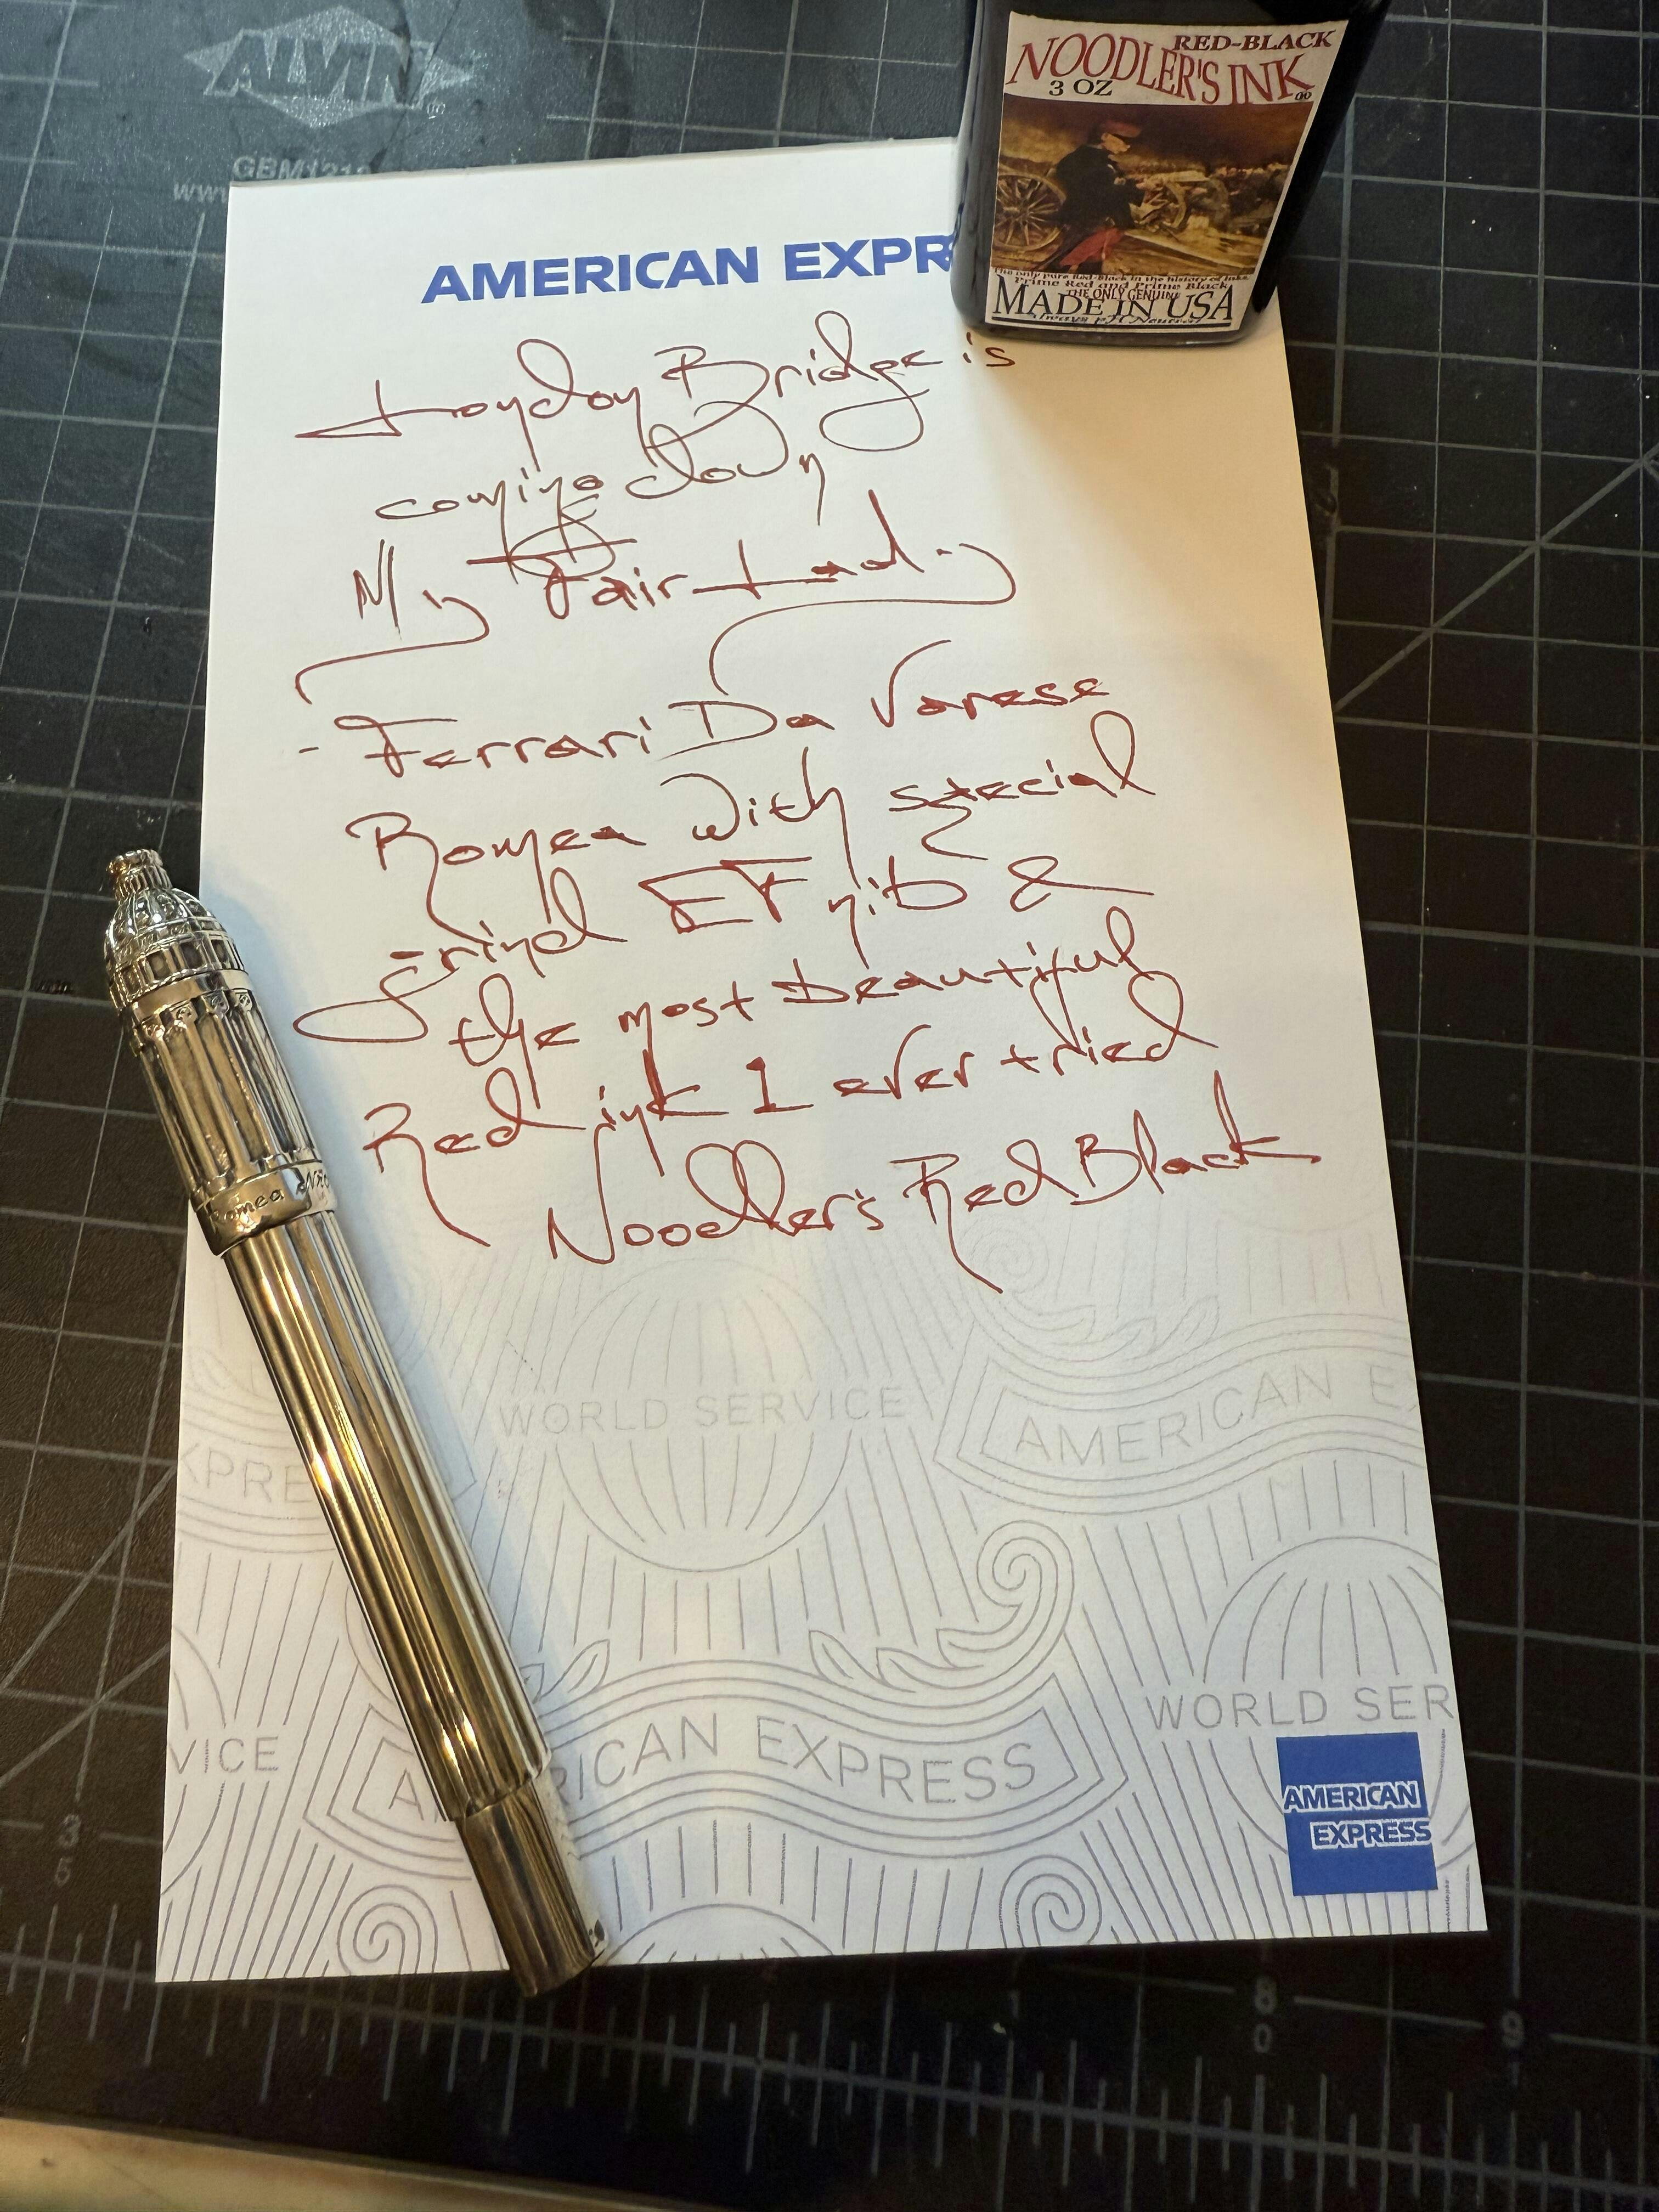 ALVIN®
GBM1218
www
RED-BLACK
NOODLER'S INK
3 OZ
The only pure Red-Black in the history of inks
Prime Red and Prime Black
THE ONLY GENUINE
MADE IN USA
Always pH Neutral
AMERICAN EXPR
London Bridge is
coming down
My Fair Lady
- Ferrari Da Varese
Romea with special
grind EF nib &
the most beautiful
Red ink I ever tried
Noodler's Red Black
Romea
WORLD SERVICE
AMERICAN E
XPRE
WORLD SER
VICE
A RICAN EXPRESS
AMERICAN
EXPRESS
3
5
8
0
9